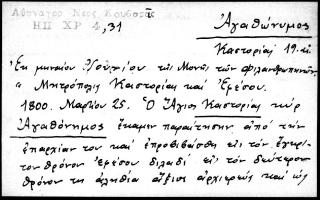 Ἀθηναγορ Νεος Κουβαρᾶς
ΗΠ ΧΡ 4, 31
Ἀγαθώνυμος
Καστορίας 19.
Ἐκ μηναίου Ἰουνίου τῆς Μονῆς τῶν Φιλανθρωπηνῶν
" Μητρόπολις Καστορίας καὶ Ἐφέσου.
1800. Μαρτίου 25. Ὁ Ἅγιος Καστορίας κύρ
Ἀγαθόνημος ἔκαμεν παραίτησην ἀπό τὴν
ἐπαρχίαν του καὶ ἐπροβιβάσθη εἰς τὸν
τον θρόνον Ἐφέσου διλαδί εἰς τὸν δεύτερον
θρόνον τῇ ἀληθία ἄξιος ἀρχιερεύς καὶ ὡς